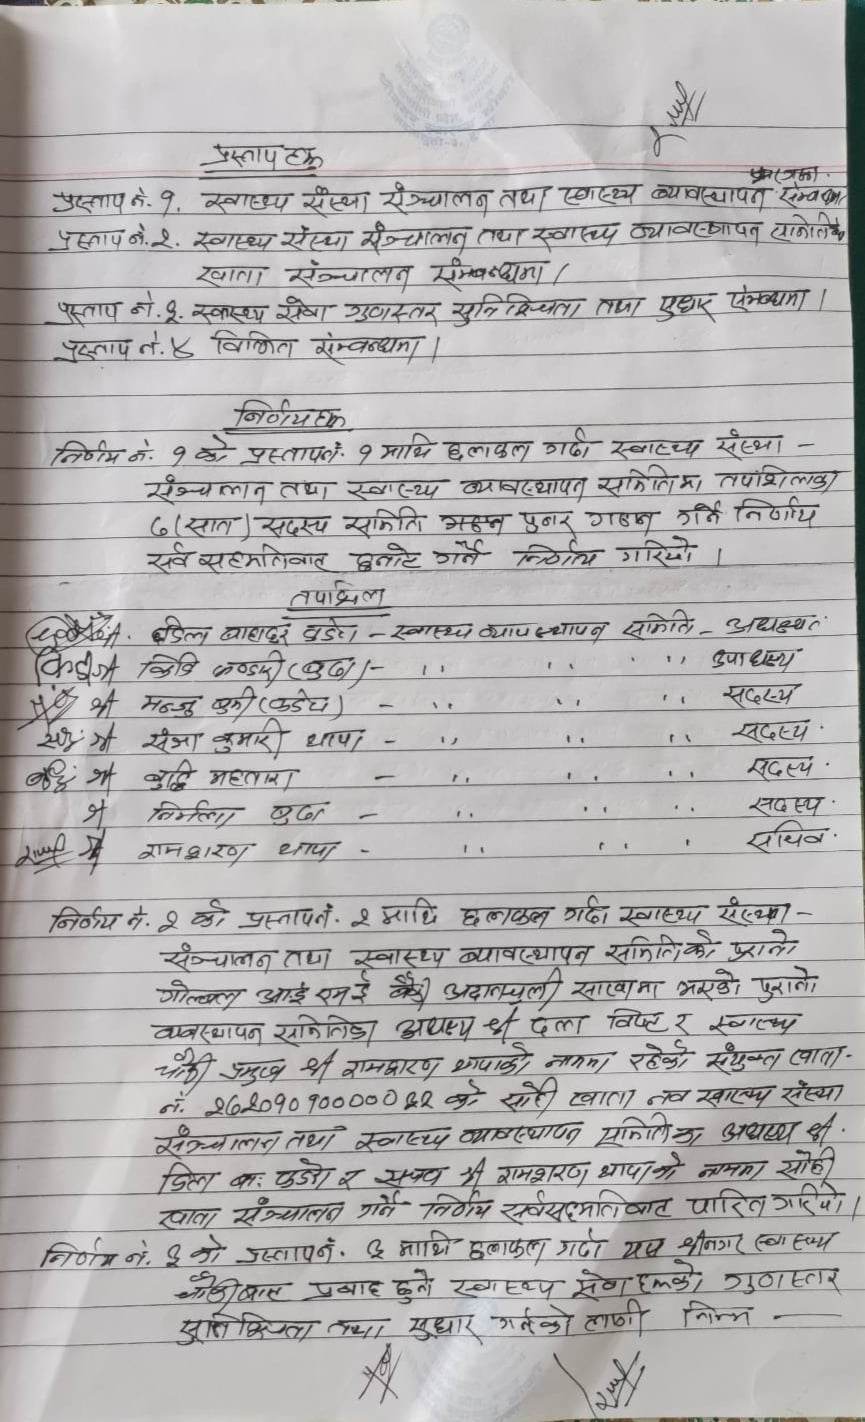 प्रस्ताव हरू
प्रस्ताव नं. १. स्वास्थ्य संस्था संञ्चालन तथा स्वास्थ्य व्यावस्थापन सम्वन्धमा
प्रस्ताव नं. २. स्वास्थ्य संस्था संञ्चालन तथा स्वास्थ्य व्यावस्थापन समितिको
खाता संञ्चालन सम्वन्धमा ।
प्रस्ताव नं. ३. स्वास्थ्य सेवा गुणस्तर सुनिश्चितता तथा सुधार सम्वन्धमा ।
प्रस्ताव नं. ४ विविध संम्वन्धमा ।
निर्णयहरू
निर्णय नं. १ को प्रस्तावनं. १ माथि छलफल गर्दा स्वास्थ्य संस्था -
संञ्चालन तथा स्वास्थ्य व्यावस्थापन समितिमा तपशिलका
७ (सात) सदस्य समिति पुनर गठन गर्ने निर्णय
सर्व सहमतिवाट छनोट गर्ने निर्णय गरियो ।
तपशिल
बाहादुर - स्वास्थ्य व्यावस्थापन समिति - अध्यक्ष
श्री (बुढा) - ,, ,, ,, उपाध्यक्ष
श्री मन्जु - ,, ,, ,, सदस्य
श्री कुमारी थापा - ,, ,, ,, सदस्य
श्री बुद्धि महतारा - ,, ,, ,, सदस्य
श्री निर्मला बुढा - ,, ,, ,, सदस्य
श्री रामशरण थापा - ,, ,, ,, सचिव
निर्णय नं. २ को प्रस्तावनं. २ माथि छलफल गर्दा स्वास्थ्य संस्था -
संञ्चालन तथा स्वास्थ्य व्यावस्थापन समितिको पुरानो
ग्लोबल आई एम ई बैंक शाखामा भएको पुरानो
व्यवस्थापन समितिका अध्यक्ष श्री र स्वास्थ्य
चौकी प्रमुख श्री रामशरण थापाको नाममा रहेको संयुक्त खाता
नं. को सोही खाता नव स्वास्थ्य संस्था
संञ्चालन तथा स्वास्थ्य व्यावस्थापन समितिका अध्यक्ष श्री
बा: र सचिव श्री रामशरण थापाको नाममा सोही
खाता संञ्चालन गर्ने निर्णय सर्वसहमतिवाट पारित गरियो ।
निर्णय नं. ३ को प्रस्तावनं. ३ माथि छलफल गर्दा यस श्रीनगर स्वास्थ्य
चौकीबाट प्रवाह हुने स्वास्थ्य सेवा हरूको गुणस्तर
सुनिश्चितता तथा सुधार गर्नको लागी निम्न —